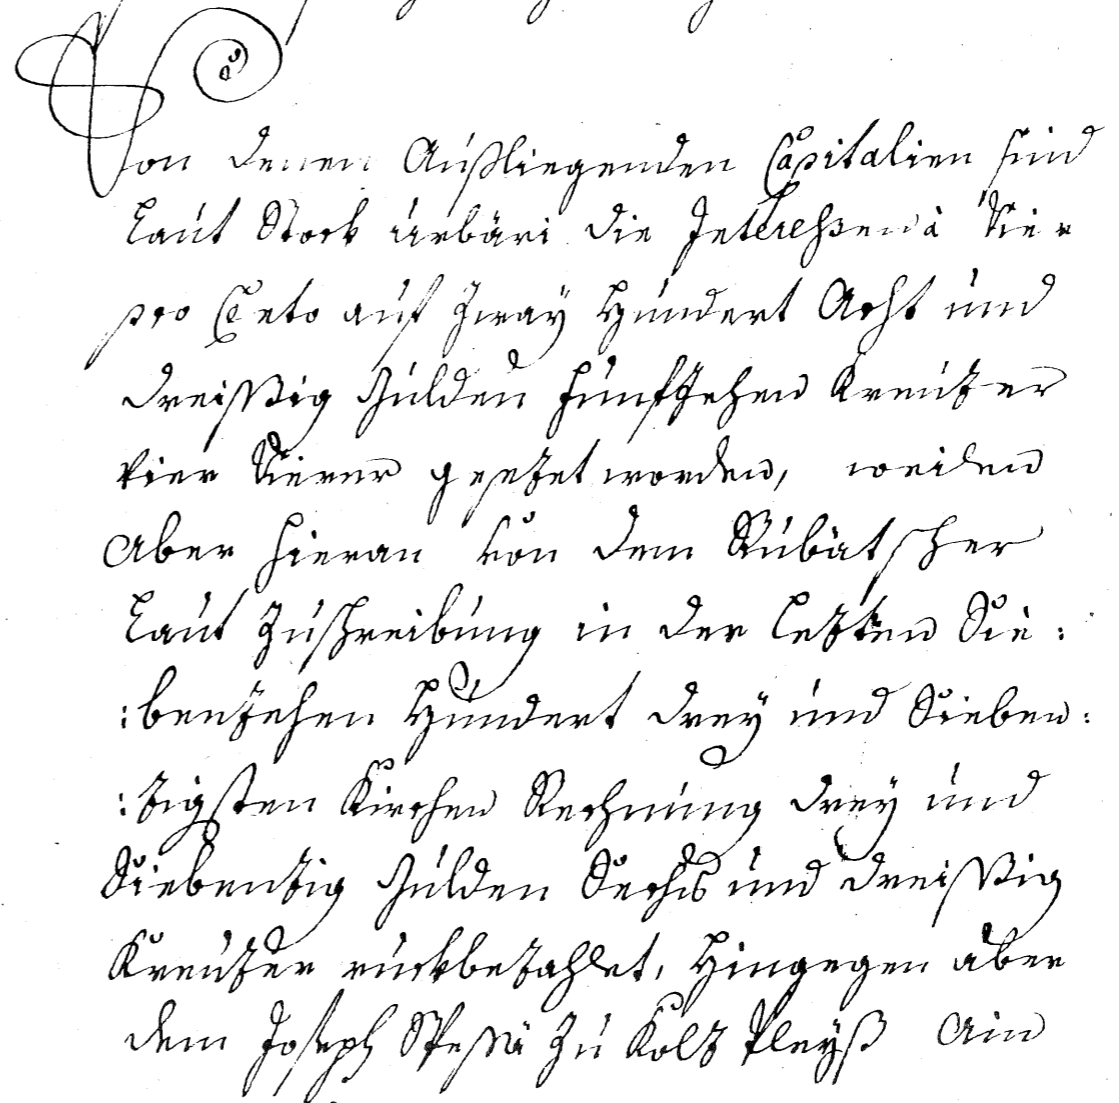 Von denen Außliegenden Capitalien sind
Laut Stock urbari die Interessen à Vier
pro Cento auf Zway Hundert Acht und
dreissig Gulden fünfzehen Kreuzer
vier Vierer gesezet worden, weilen
Aber hieran von dem Rubatscher
Laut Zuschreibung in der Lezten Sie:
:benzehen Hundert drey und Sieben:
:zigsten Kirchen Rechnung drey und
Siebenzig Gulden Sechs und dreissig
Kreuzer ruckbezahlet, Hingegen aber
dem Joseph zu Ain